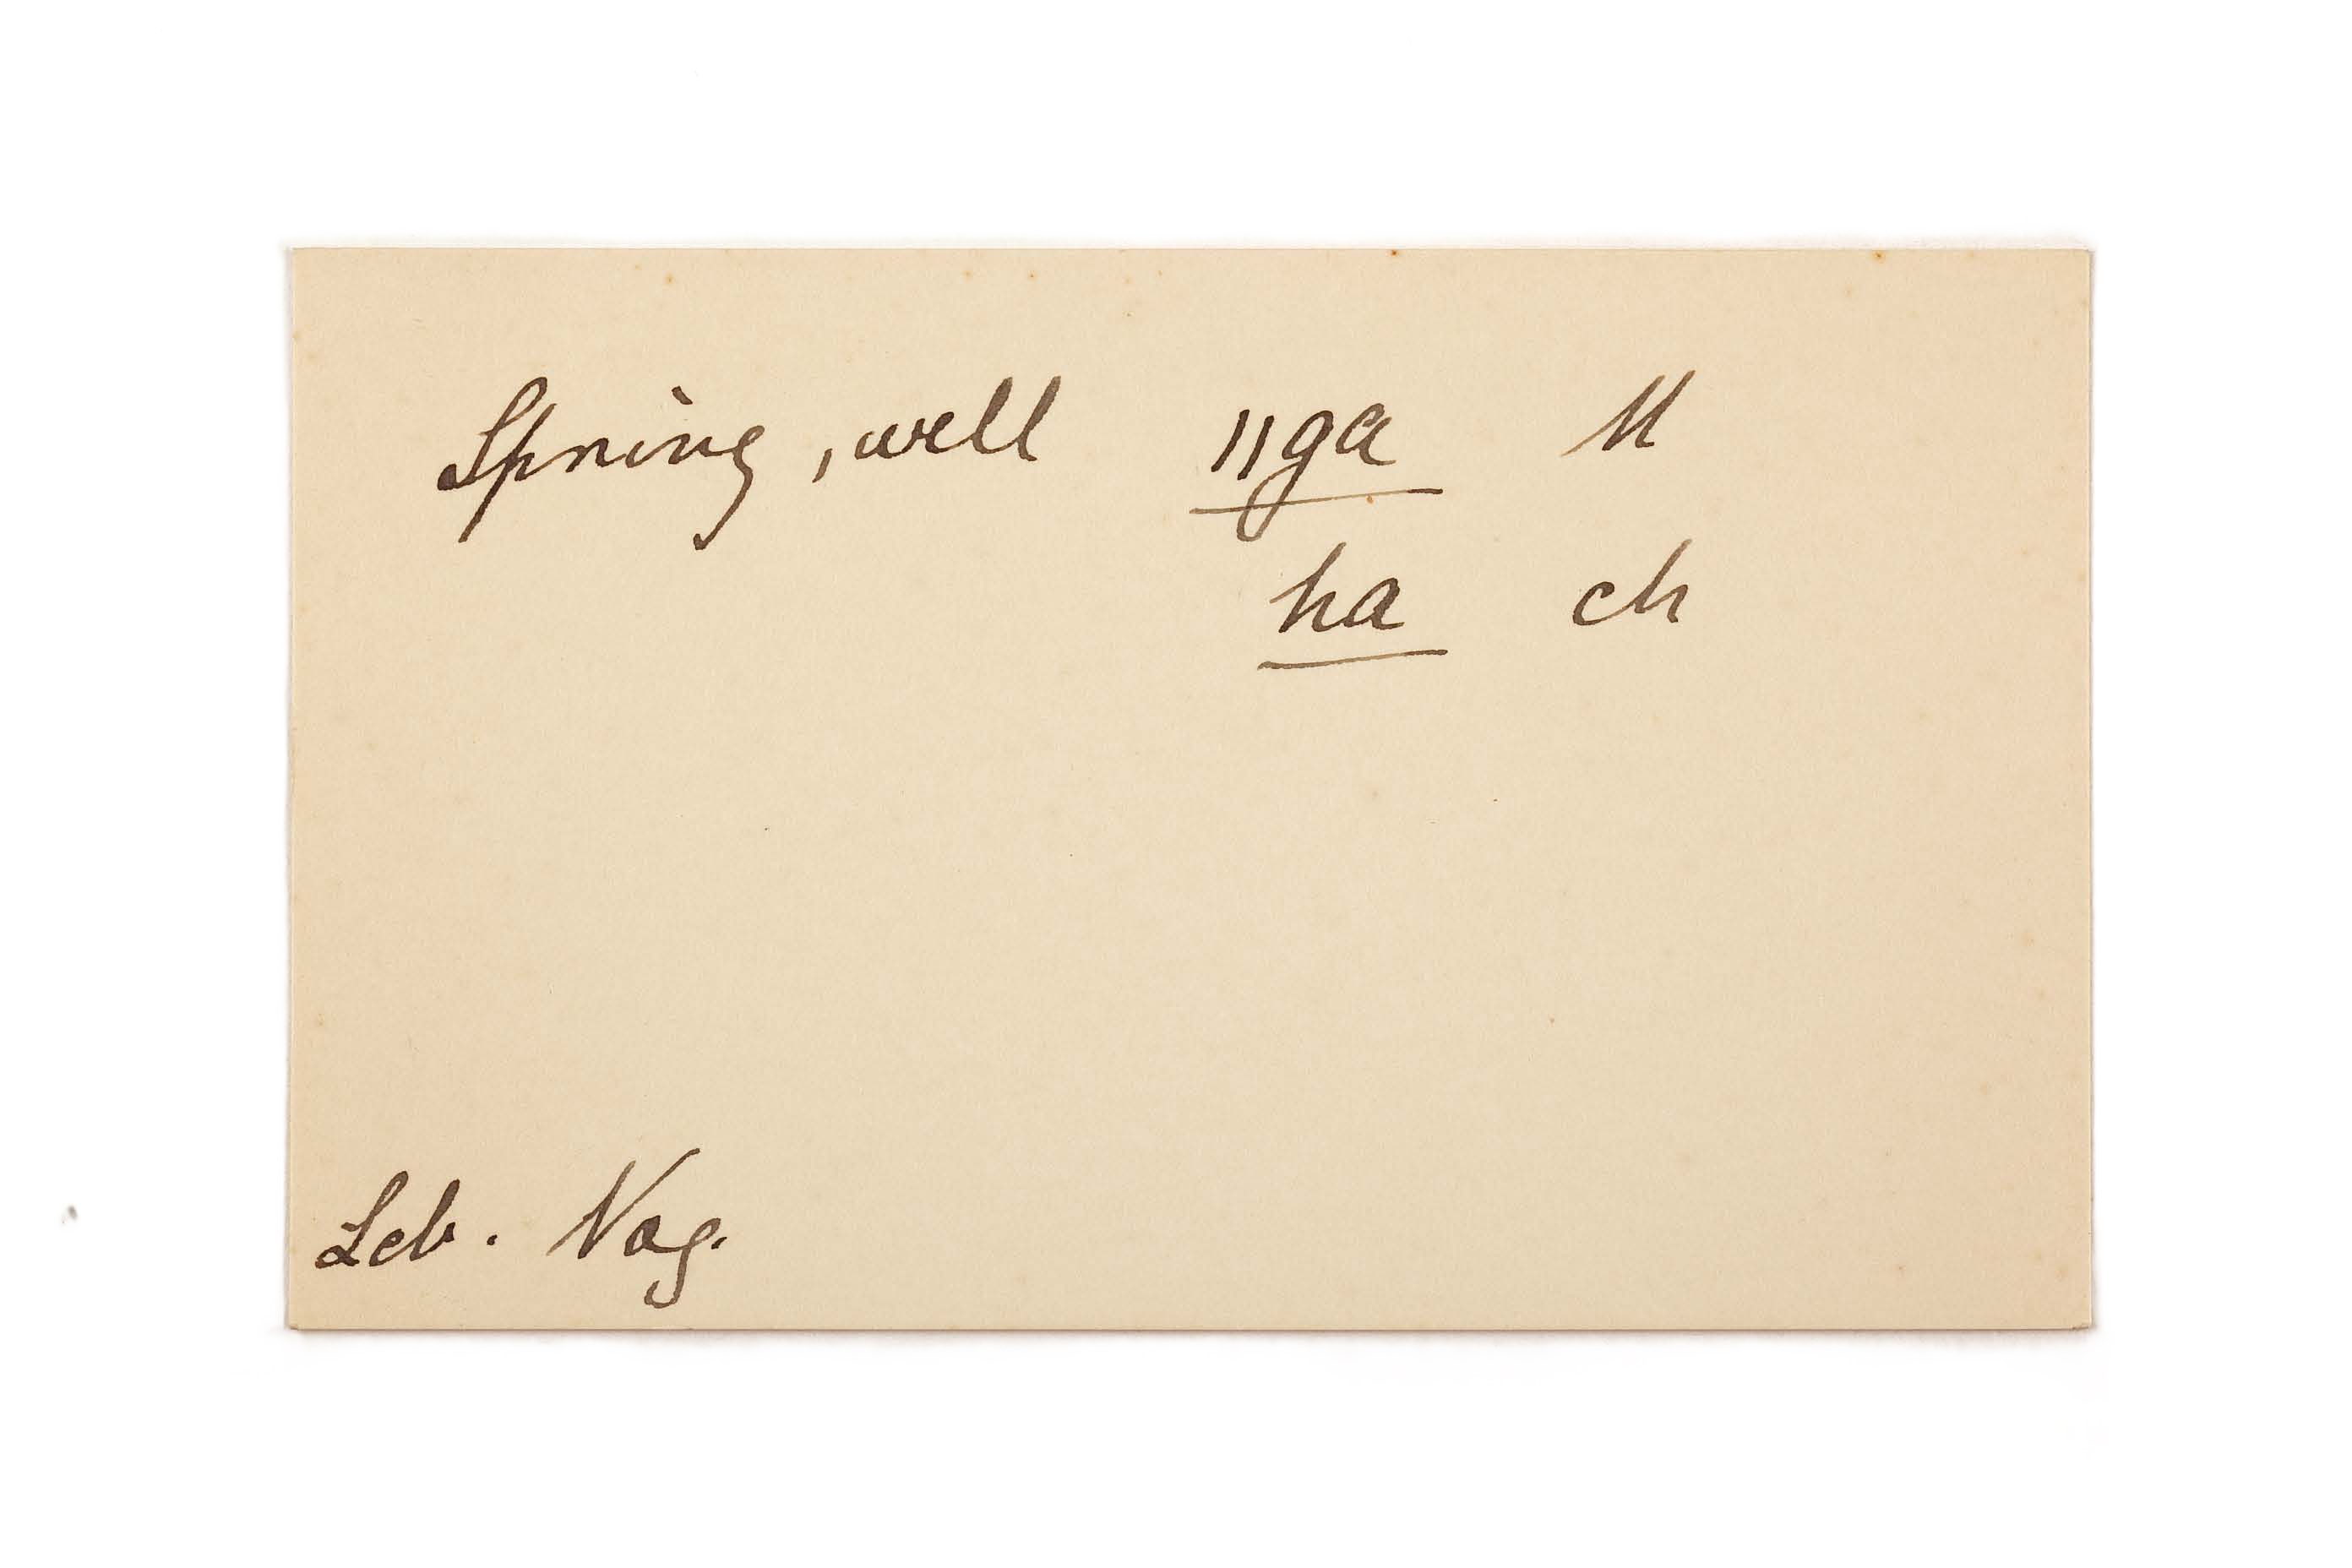 Spring, well ǁga M
ha ch
Leb. Nog.